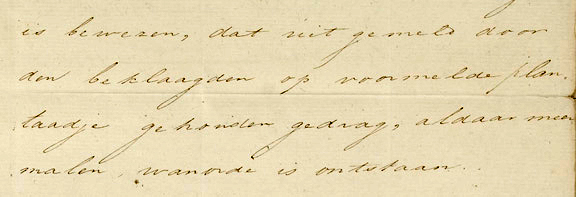 is bewezen, dat uit gemeld door
den beklaagden op voormelde plan-
taadje gehouden gedrag, aldaar meer
malen, wanorde is ontstaan.